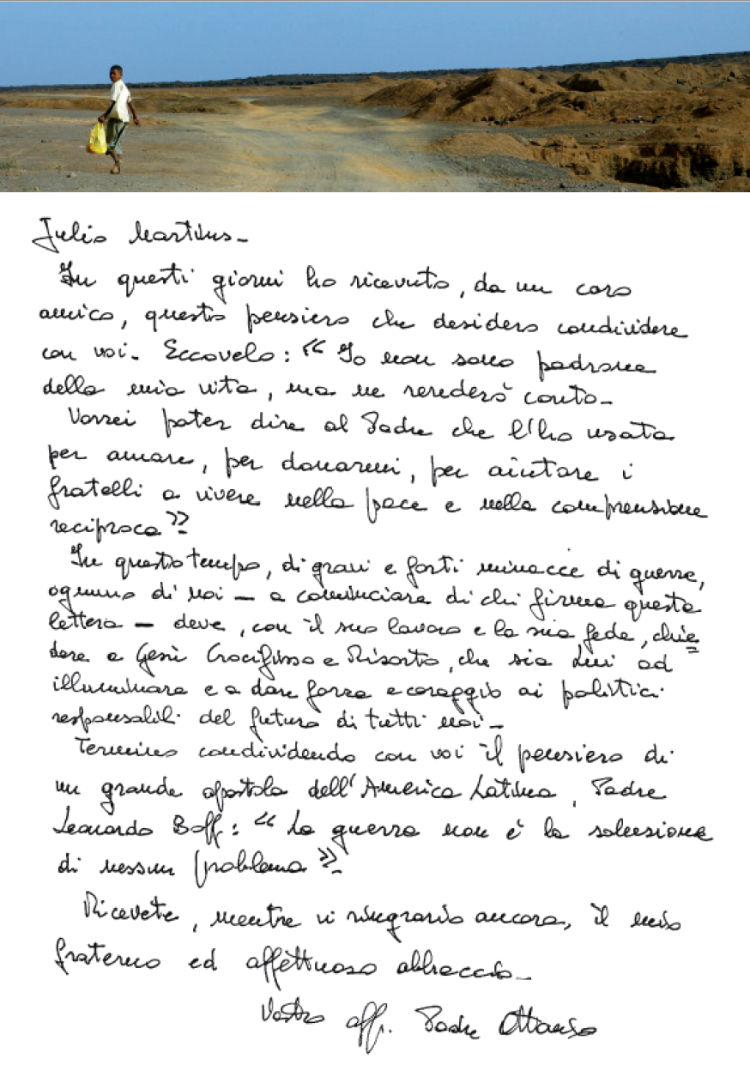 Julio Martins -
In questi giorni ho ricevuto, da un caro
amico, questo pensiero che desidero condividere
con voi - Eccovelo: “Io non sono padrone
della mia vita, ma ne renderò conto -
Vorrei poter dire al Padre che l'ho usata
per amare, per donarmi, per aiutare i
fratelli a vivere nella pace e nella comprensione
reciproca”.
In questo tempo, di gravi e forti minacce di guerre,
ognuno di noi – a cominciare di chi firma questa
lettera – deve, con il suo lavoro e la sua fede, chie=
dere a Gesù Crocifisso e Risorto, che sia Lui ad
illuminare e a dare forza e coraggio ai politici
responsabili del futuro di tutti noi -
Termino condividendo con voi il pensiero di
un grande apostolo dell'America Latina, Padre
Leonardo Boff: “La guerra non è la soluzione
di nessun problema”.
Ricevete, mentre vi ringrazio ancora, il mio
fraterno ed affettuoso abbraccio -
Vostro aff. Padre